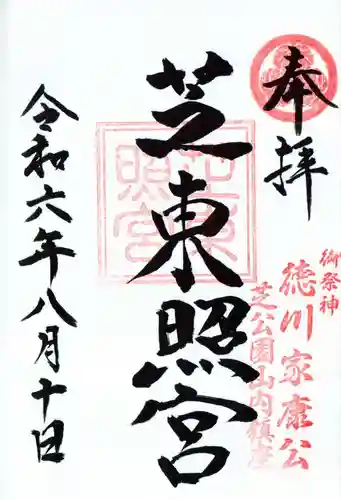 奉拝
御祭神
徳川家康公
芝公園山内鎮座
芝東照宮
令和六年八月十日